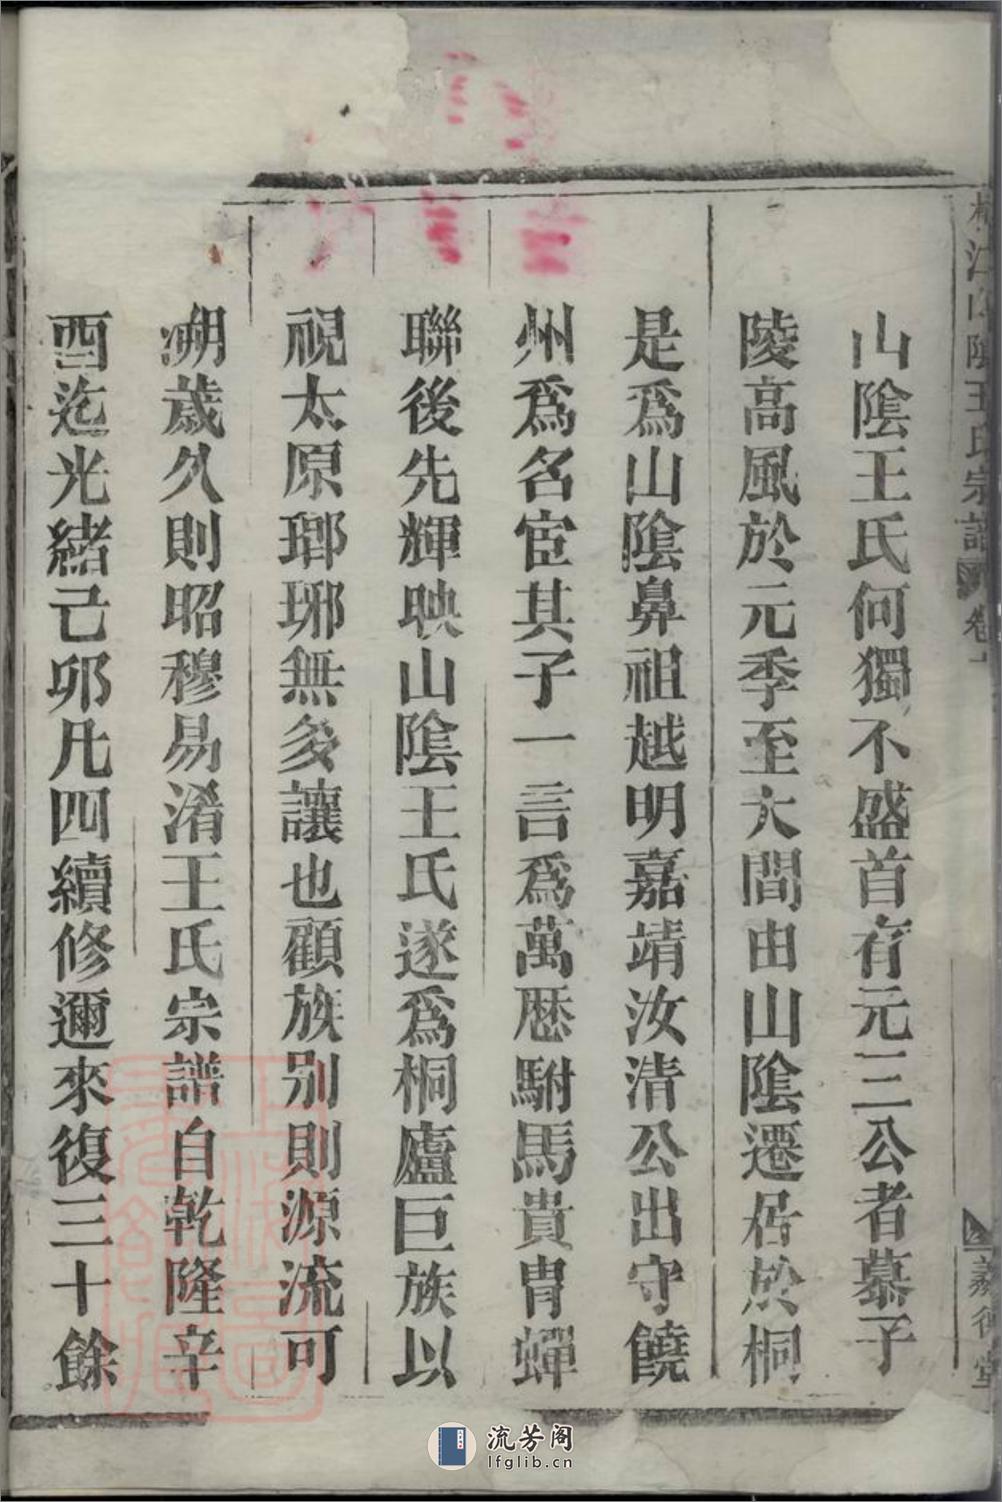 山陰王氏何獨不盛首有元三公者慕子
陵高風於元季至大間由山陰遷居於桐
是爲山陰鼻祖越明嘉靖汝清公出守饒
州爲名宦其子一言爲萬厯駙馬貴胄蟬
聯後先輝映山陰王氏遂爲桐廬巨族以
視太原瑯琊無多讓也顧族別則源流可
溯歲久則昭穆易淆王氏宗譜自乾隆辛
酉迄光緒己卯凡四續修邇來復三十餘
江山陰王氏宗譜
卷
流芳阁
lfglib.cn